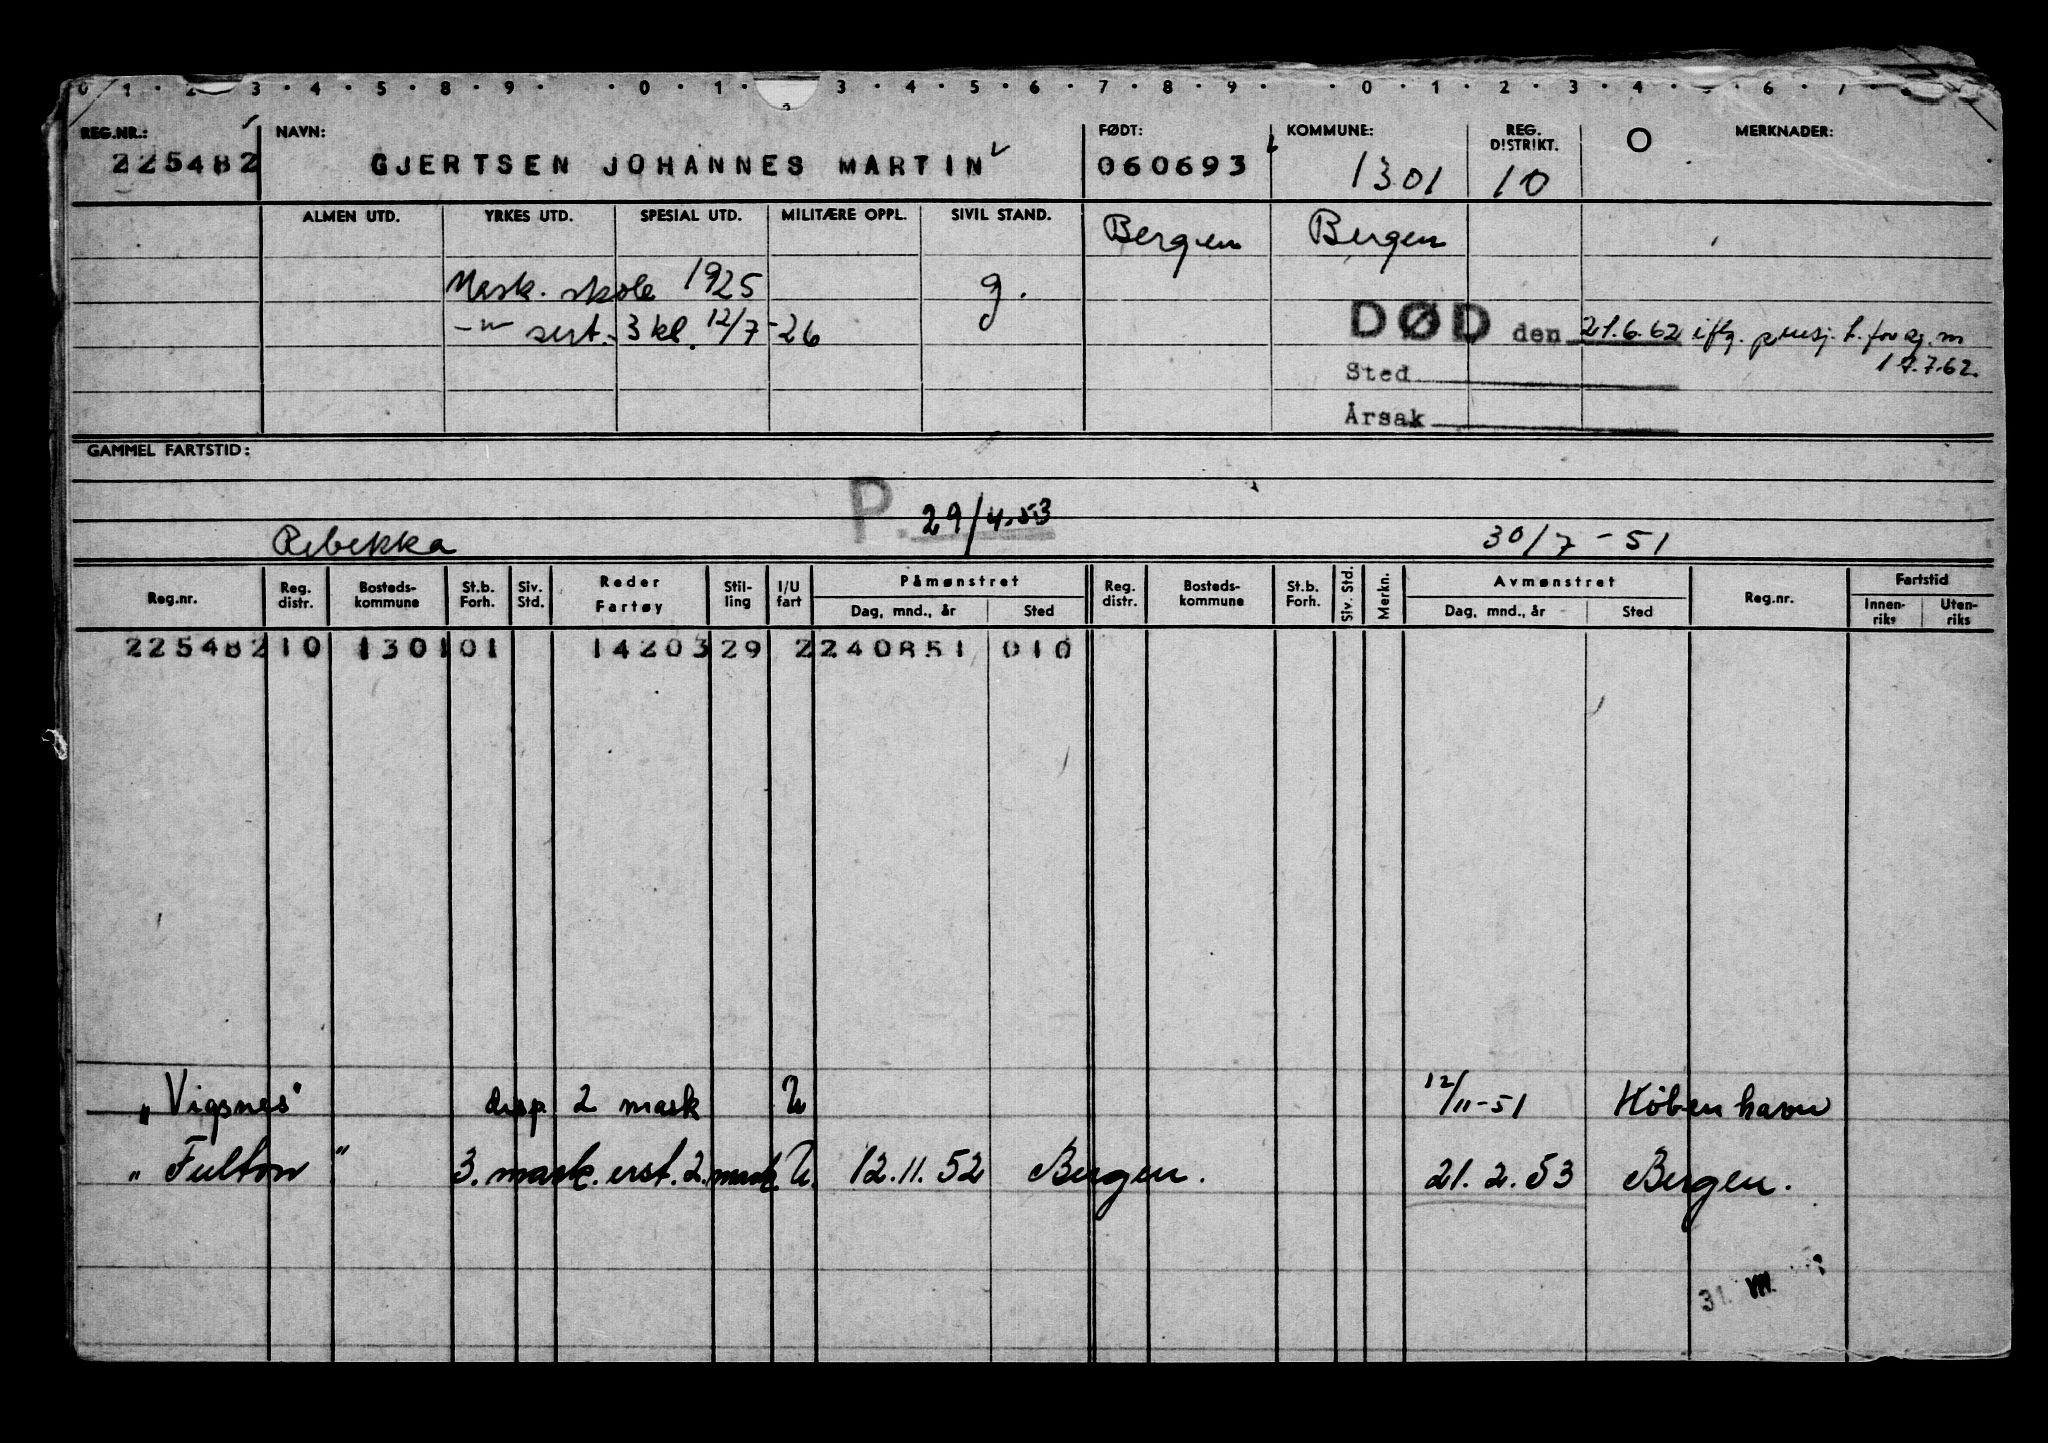 0 1 · 2 3 · 4 · 5 · 8 · 9 · · 0 · 1 · 2 3 · 4 · 5 · 6 · 7 · 8 · 9 · · 0 · 1 · 2 · 3 · 4 · 5 · 6 · 7
REG.NR.: NAVN: FØDT: KOMMUNE: REG. DISTRIKT. O MERKNADER:
225482 GJERTSEN JOHANNES MARTIN 060693 1301 10
ALMEN UTD. YRKES UTD. SPESIAL UTD. MILITÆRE OPPL. SIVIL STAND. Bergen Bergen
Mask. skole 1925 g.
-"- sert. 3 kl. 12/7-26
DØD den 21.6.62 iflg. pensj. t. for sj. m
17.7.62.
Sted
Årsak
GAMMEL FARTSTID:
P. 29/4.53
Rebekka 30/7-51
Reg.nr. Reg. distr. Bosteds-kommune St.b. Forh. Siv. Std. Reder Fartøy Stil-ling I/U fart Påmønstret Dag, mnd., år Sted Reg. distr. Bosteds-kommune St.b. Forh. Siv. Std. Merkn. Avmønstret Dag, mnd., år Sted Reg.nr. Fartstid Innen-riks Uten-riks
225482 10 1301 01 14203 29 2 240851 010
"Vigsnes" disp. 2 mask U 12/11-51 Köbenhavn
"Fulton" 3. mask. erst. 2. mask U. 12.11.52 Bergen. 21.2.53 Bergen.
31. VIII.